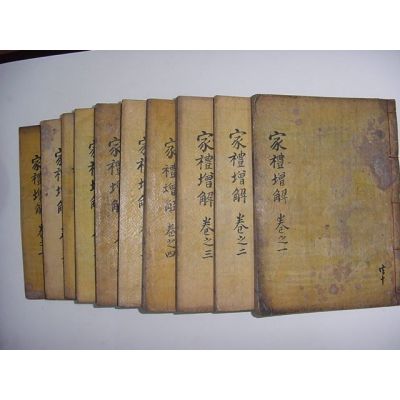 家禮增解 卷之一
共十
家禮增解 卷之二
家禮增解 卷之三
家禮增解 卷之四
家禮增解
家禮增解
家禮增解
家禮增解
家禮增解 卷之